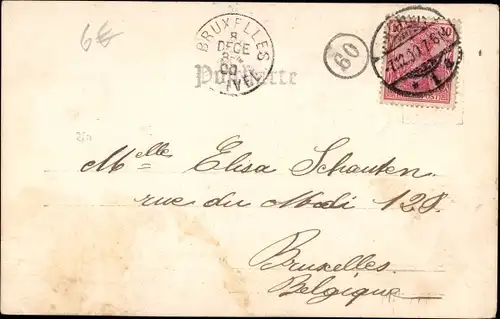 6€
BRUXELLES
8
DECE
Postkarte
60
Melles Elisa Schauten
rue du Midi 128.
Bruxelles.
Belgique